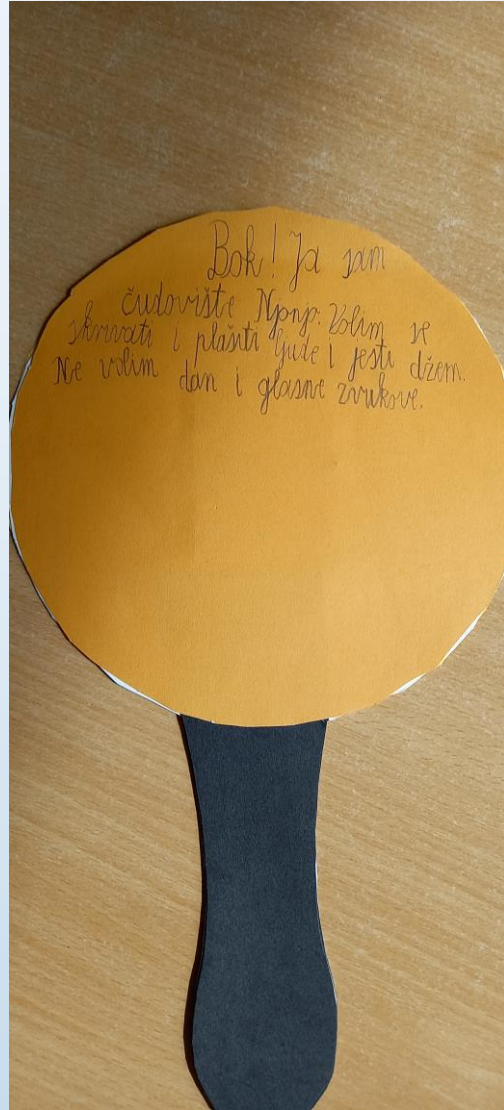 Bok! Ja sam
čudovište Npnjp. Volim se
skrivati i plašiti ljude i jesti džem.
Ne volim dan i glasne zvukove.